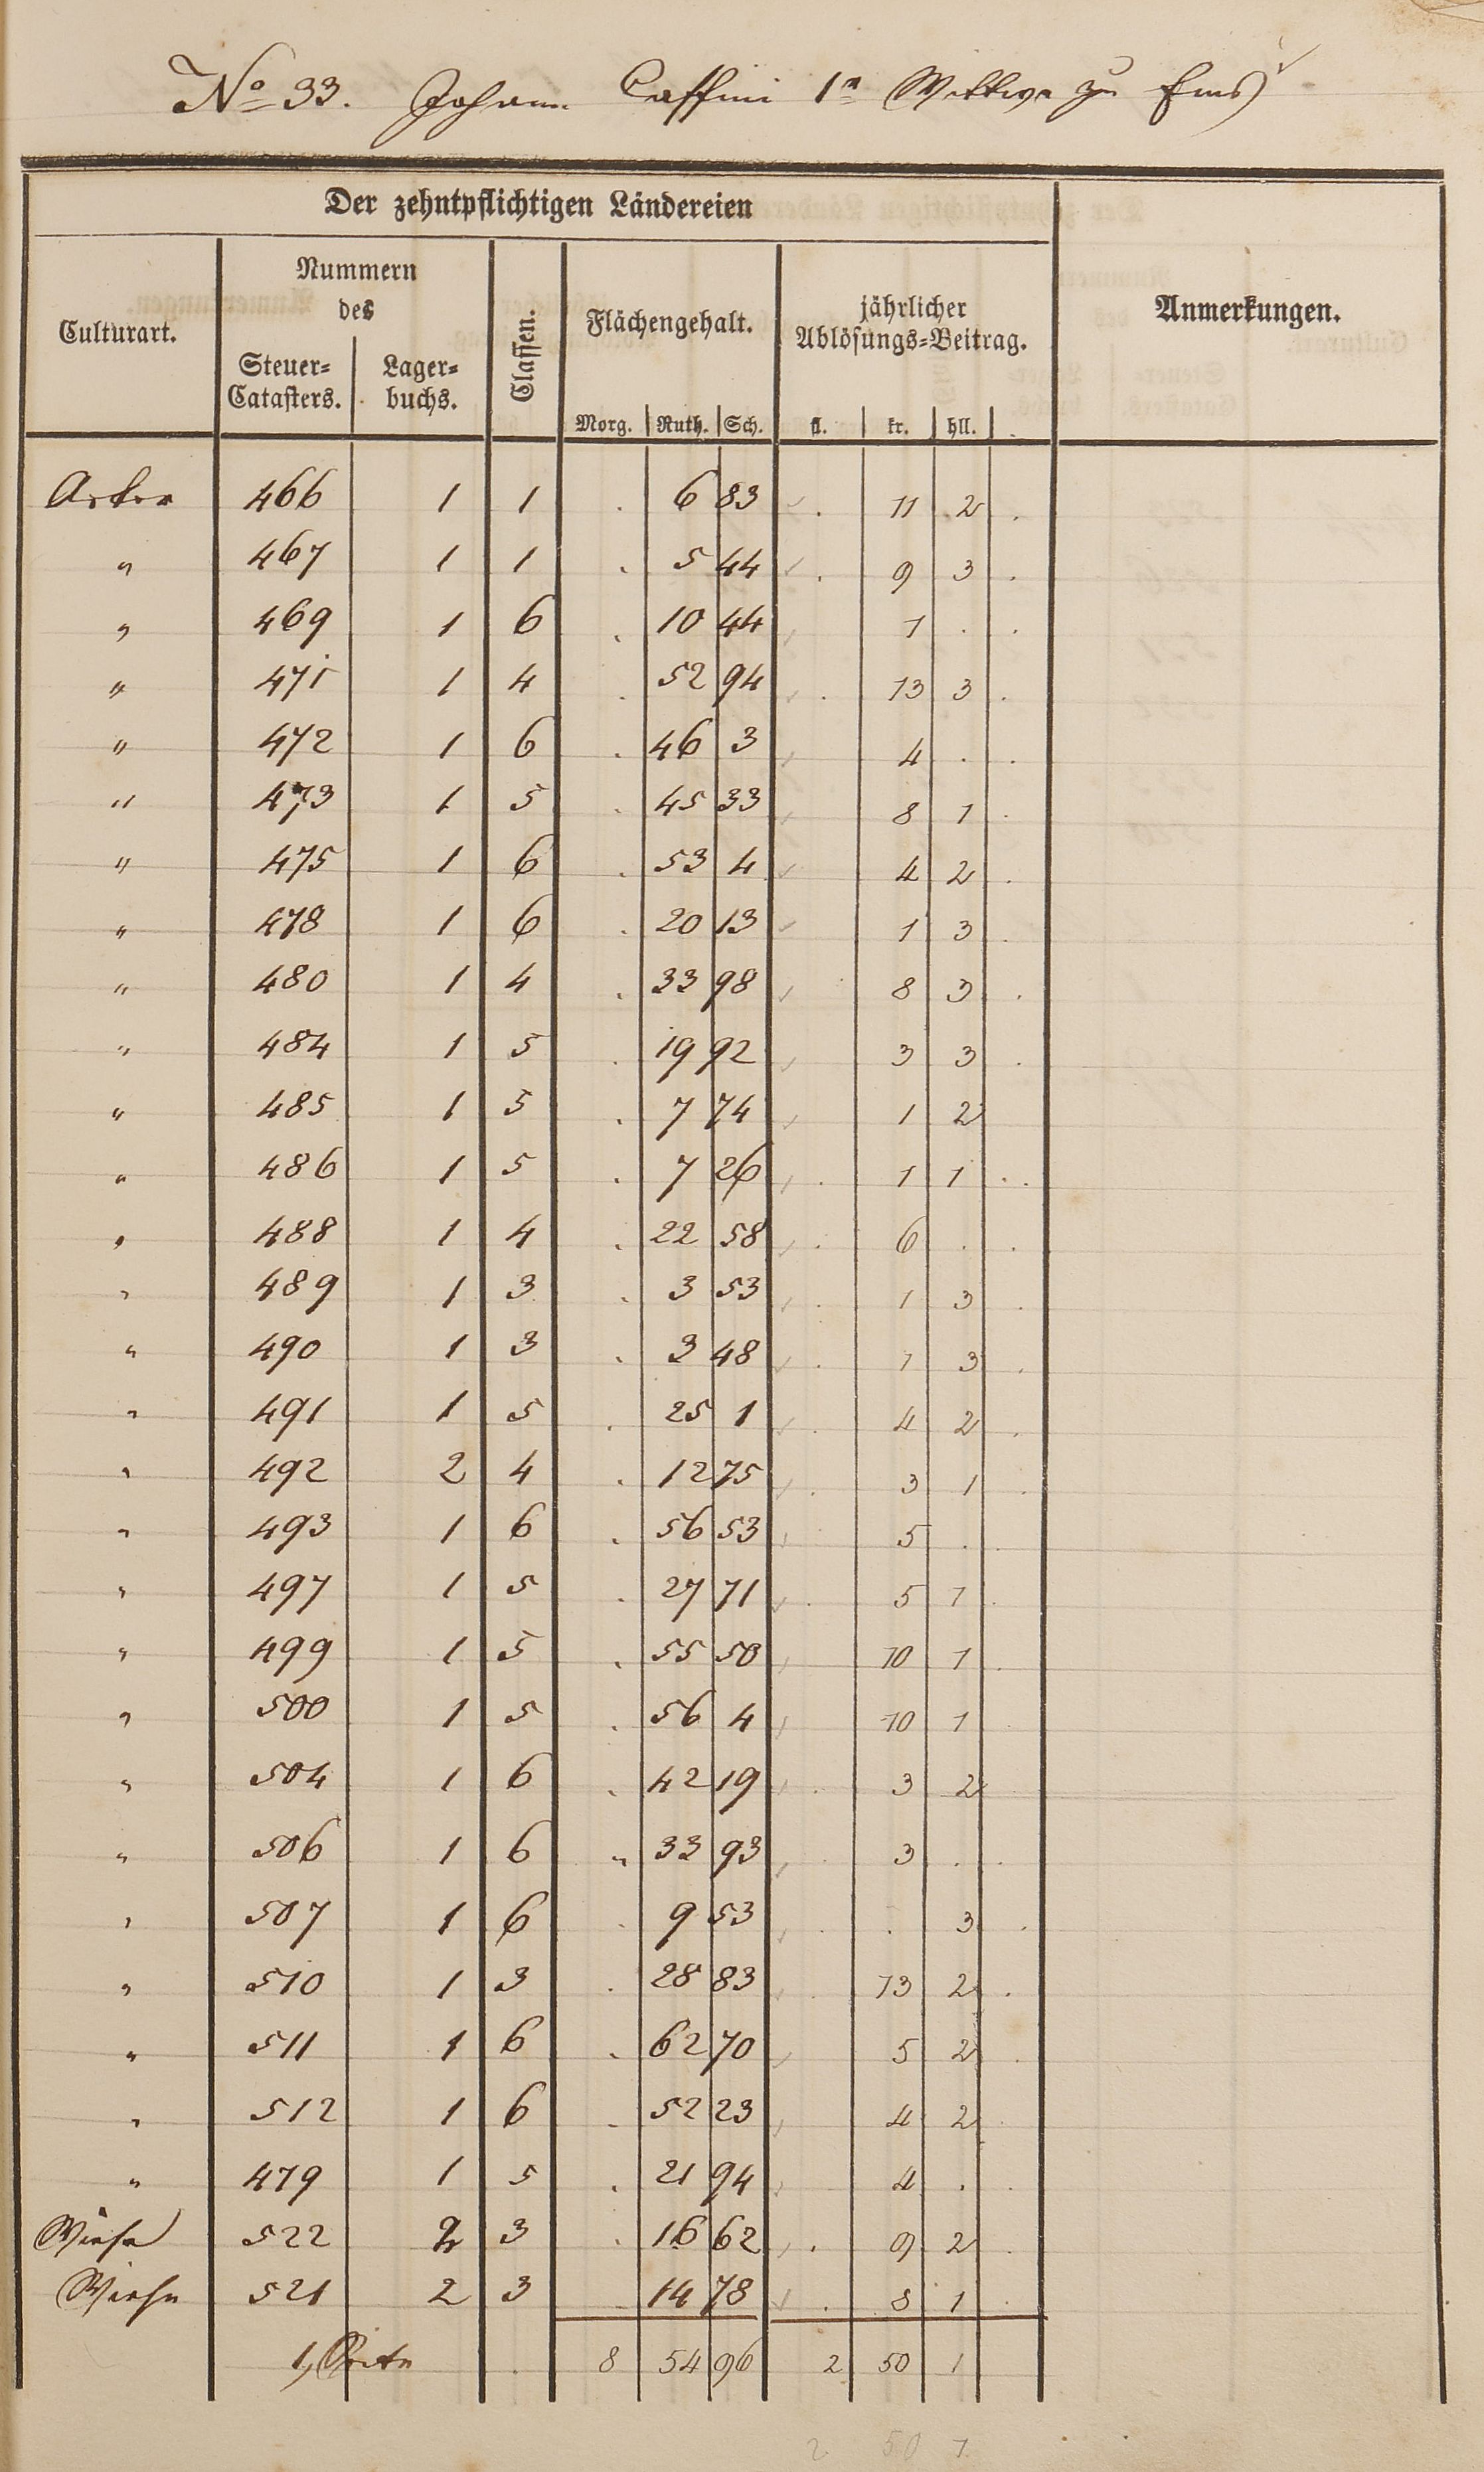 No 33. Johann Caffini 1r Wittwe zu Ems
Der zehntpflichtigen Ländereien
Culturart. Nummern des Steuer=Catasters. Lager=buchs. Classen. Flächengehalt. Morg. Ruth. Sch. jährlicher Ablösungs=Beitrag. fl. kr. hll. Anmerkungen.
Acker 466 1 1 . 6 83 . 11 2 .
" 467 1 1 . 5 44 . 9 3 .
" 469 1 6 . 10 44 1 . .
" 471 1 4 . 52 94 . 13 3 .
" 472 1 6 . 46 3 4 . .
" 473 1 5 . 45 33 8 1 .
" 475 1 6 . 53 4 4 2 .
" 478 1 6 . 20 13 1 3 .
" 480 1 4 . 33 98 8 3 .
" 484 1 5 . 19 92 3 3 .
" 485 1 5 . 7 74 1 2
" 486 1 5 . 7 26 . 1 1 . .
" 488 1 4 . 22 58 . 6 . .
" 489 1 3 . 3 53 . 1 3 .
" 490 1 3 . 3 48 . 1 3 .
" 491 1 5 . 25 1 . 4 2 .
" 492 2 4 . 12 75 . 3 1 .
" 493 1 6 . 56 53 5 .
" 497 1 5 . 27 71 . 5 1 .
" 499 1 5 . 55 50 10 1 .
" 500 1 5 . 56 4 10 1
" 504 1 6 . 42 19 . 3 2
" 506 1 6 " 33 93 3 . .
" 507 1 6 . 9 53 . . 3 .
" 510 1 3 . 28 83 . 13 2 .
" 511 1 6 . 62 70 5 2 .
" 512 1 6 . 52 23 4 2
" 479 1 5 . 21 94 4 . .
Wiese 522 2 3 . 16 62 . 9 2 .
Wiese 521 2 3 14 78 . 8 1 .
1, Seite . 8 54 96 2 50 1
2 50 1